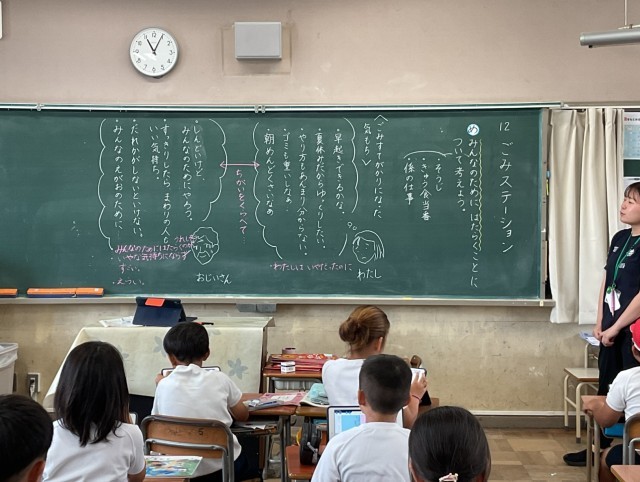 12 ごみステーション
め みんなのために、はたらくことに
ついて考えよう。
・そうじ
・きゅう食当番
・係の仕事
＜ごみすてがかりになった
気もち＞
・早起きできるかな。
・夏休みだからゆっくりしたい。
・やり方もあんまり分からない。
・ゴミも重いしなぁ。
・朝めんどくさいなぁ
わたし
・わたしはいやだったのに
ちがいをくらべて
・しんどいけど、
みんなのためにやろう。
・すっきりしたら、まわりの人も
いい気持ち。
・だれかがしないといけない。
・みんなのえがおのために
おじいさん
みんなのためにはたらくのが
いやな気持ちにならず
すごい。